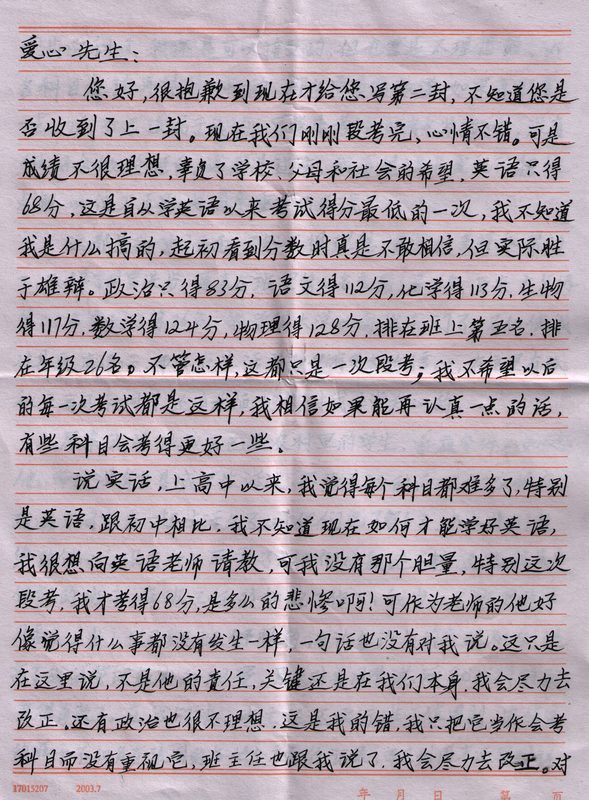 爱心先生：
您好，很抱歉到现在才给您写第二封，不知道您是
否收到了上一封。现在我们刚刚段考完，心情不错。可是
成绩不很理想，辜负了学校、父母和社会的希望，英语只得
68分，这是自从学英语以来考试得分最低的一次，我不知道
我是什么搞的，起初看到分数时真是不敢相信，但实际胜
于雄辩。政治只得83分，语文得112分，化学得113分，生物
得117分，数学得124分，物理得128分，排在班上第五名，排
在年级26名。不管怎样，这都只是一次段考；我不希望以后
的每一次考试都是这样，我相信如果能再认真一点的话，
有些科目会考得更好一些。
说实话，上高中以来，我觉得每个科目都难多了，特别
是英语，跟初中相比，我不知道现在如何才能学好英语，
我很想向英语老师请教，可我没有那个胆量，特别这次
段考，我才考得68分，是多么的悲惨啊！可作为老师的他好
像觉得什么事都没有发生一样，一句话也没有对我说。这只是
在这里说，不是他的责任，关键还是在我们本身，我会尽力去
改正。还有政治也很不理想，这是我的错，我只把它当作会考
科目而没有重视它，班主任也跟我说了，我会尽力去改正。对
17015207 2003.7 年 月 日 第 页